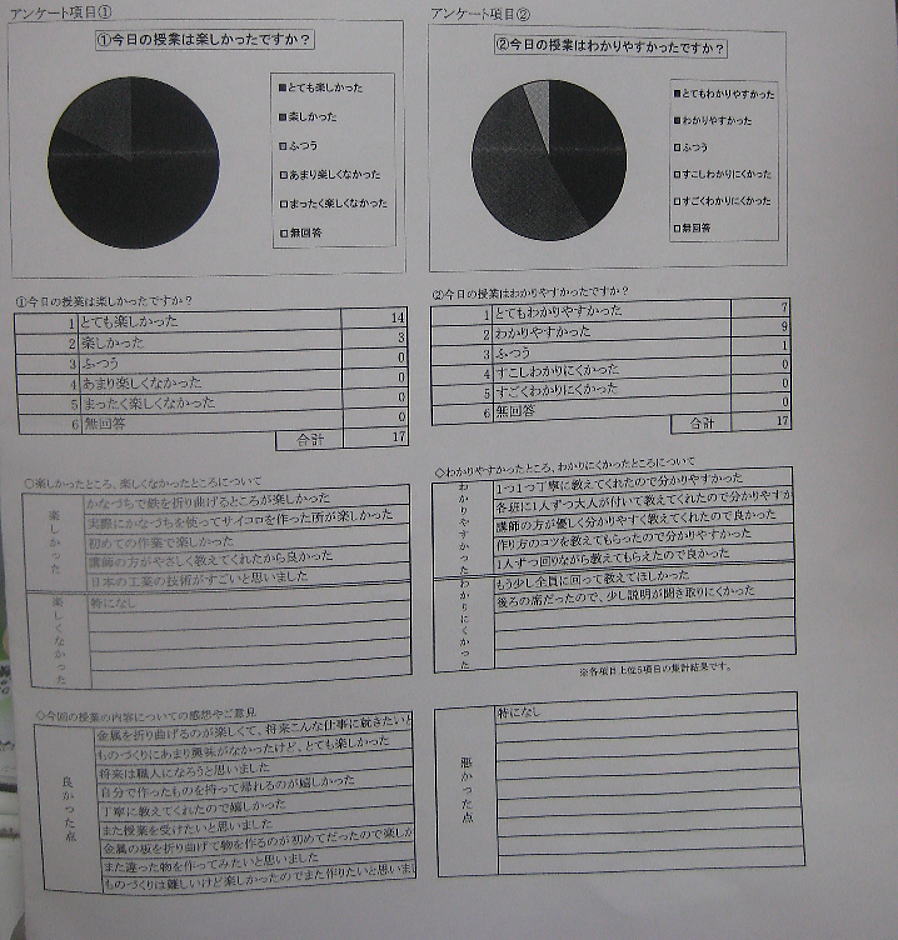 アンケート項目①
①今日の授業は楽しかったですか?
とても楽しかった
楽しかった
ふつう
あまり楽しくなかった
まったく楽しくなかった
無回答
アンケート項目②
②今日の授業はわかりやすかったですか?
とてもわかりやすかった
わかりやすかった
ふつう
すこしわかりにくかった
すごくわかりにくかった
無回答
①今日の授業は楽しかったですか?
1 とても楽しかった 14
2 楽しかった 3
3 ふつう 0
4 あまり楽しくなかった 0
5 まったく楽しくなかった 0
6 無回答 0
合計 17
②今日の授業はわかりやすかったですか?
1 とてもわかりやすかった 7
2 わかりやすかった 9
3 ふつう 1
4 すこしわかりにくかった 0
5 すごくわかりにくかった 0
6 無回答 0
合計 17
○楽しかったところ、楽しくなかったところについて
楽しかった
かなづちで鉄を折り曲げるところが楽しかった
実際にかなづちを使ってサイコロを作った所が楽しかった
初めての作業で楽しかった
講師の方がやさしく教えてくれたから良かった
日本の工業の技術がすごいと思いました
楽しくなかった
特になし
◇わかりやすかったところ、わかりにくかったところについて
わかりやすかった
1つ1つ丁寧に教えてくれたので分かりやすかった
各班に1人ずつ大人が付いて教えてくれたので分かりやすか
講師の方が優しく分かりやすく教えてくれたので良かった
作り方のコツを教えてもらったので分かりやすかった
1人ずつ回りながら教えてもらえたので良かった
わかりにくかった
もう少し全員に回って教えてほしかった
後ろの席だったので、少し説明が聞き取りにくかった
※各項目上位5項目の集計結果です。
◇今回の授業の内容についての感想やご意見
良かった点
金属を折り曲げるのが楽しくて、将来こんな仕事に就きたいと
ものづくりにあまり興味がなかったけど、とても楽しかった
将来は職人になろうと思いました
自分で作ったものを持って帰れるのが嬉しかった
丁寧に教えてくれたので嬉しかった
また授業を受けたいと思いました
金属の板を折り曲げて物を作るのが初めてだったので楽しか
また違った物を作ってみたいと思いました
ものづくりは難しいけど楽しかったのでまた作りたいと思いま
悪かった点
特になし